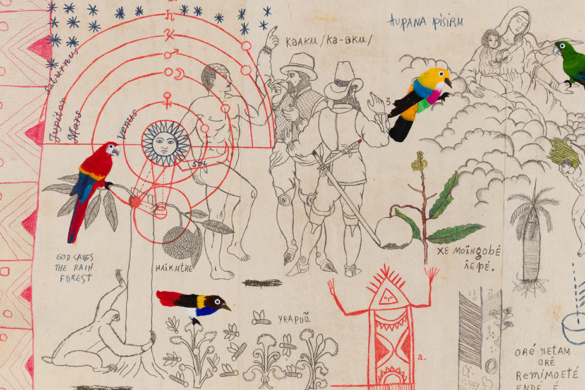 KAAKU /KA-AKU/
TUPANA PISIRU
Saturnus
Jupiter
Mars
Venus
SOL
3.
GOD SAVES
THE RAIN
FOREST
XE MOINGOBÉ
a.
ORÉ RETAM
ORÉ
REMIMOETÉ
ENDÉ É